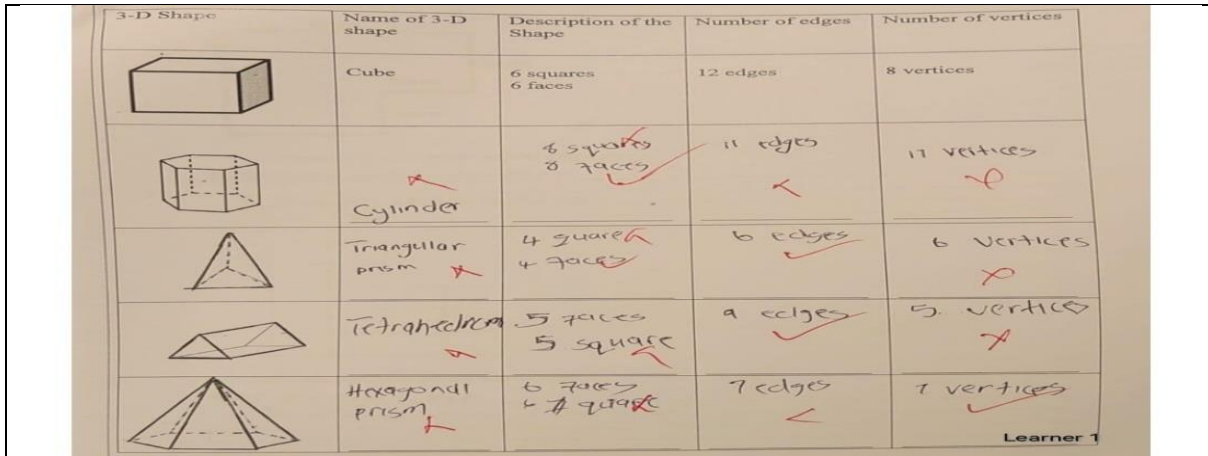 3-D Shape
Name of 3-D
shape
Description of the
Shape
Number of edges
Number of vertices
Cube
6 squares
6 faces
12 edges
8 vertices
Cylinder
8 squares
8 faces
11 edges
17 vertices
Triangular
prism
4 square
4 faces
6 edges
6 vertices
Tetrahedron
5 faces
5 square
9 edges
5. vertices
Hexagonal
prism
6 faces
7 edges
7 vertices
Learner 1